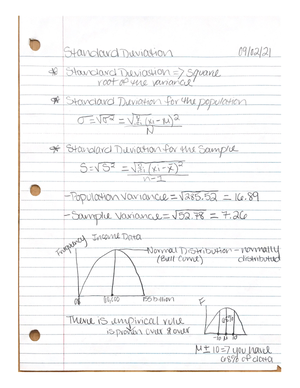 Standard Deviation 09/02/21
* Standard Deviation => square
root of the variance
* Standard Deviation for the population
σ = √σ² = √Σ(xi-μ)²
N
* Standard Deviation for the Sample
S = √S² = √Σ(xi-x̄)²
n-1
- Population Variance = √285.52 = 16.89
- Sample Variance = √52.78 = 7.26
Frequency Income Data
Normal Distribution - normally
(Bell Curve) distributed
There is empirical rule
is proven over & over
F
68%
-1σ μ 1σ
μ ± 1σ => you have
68% of data